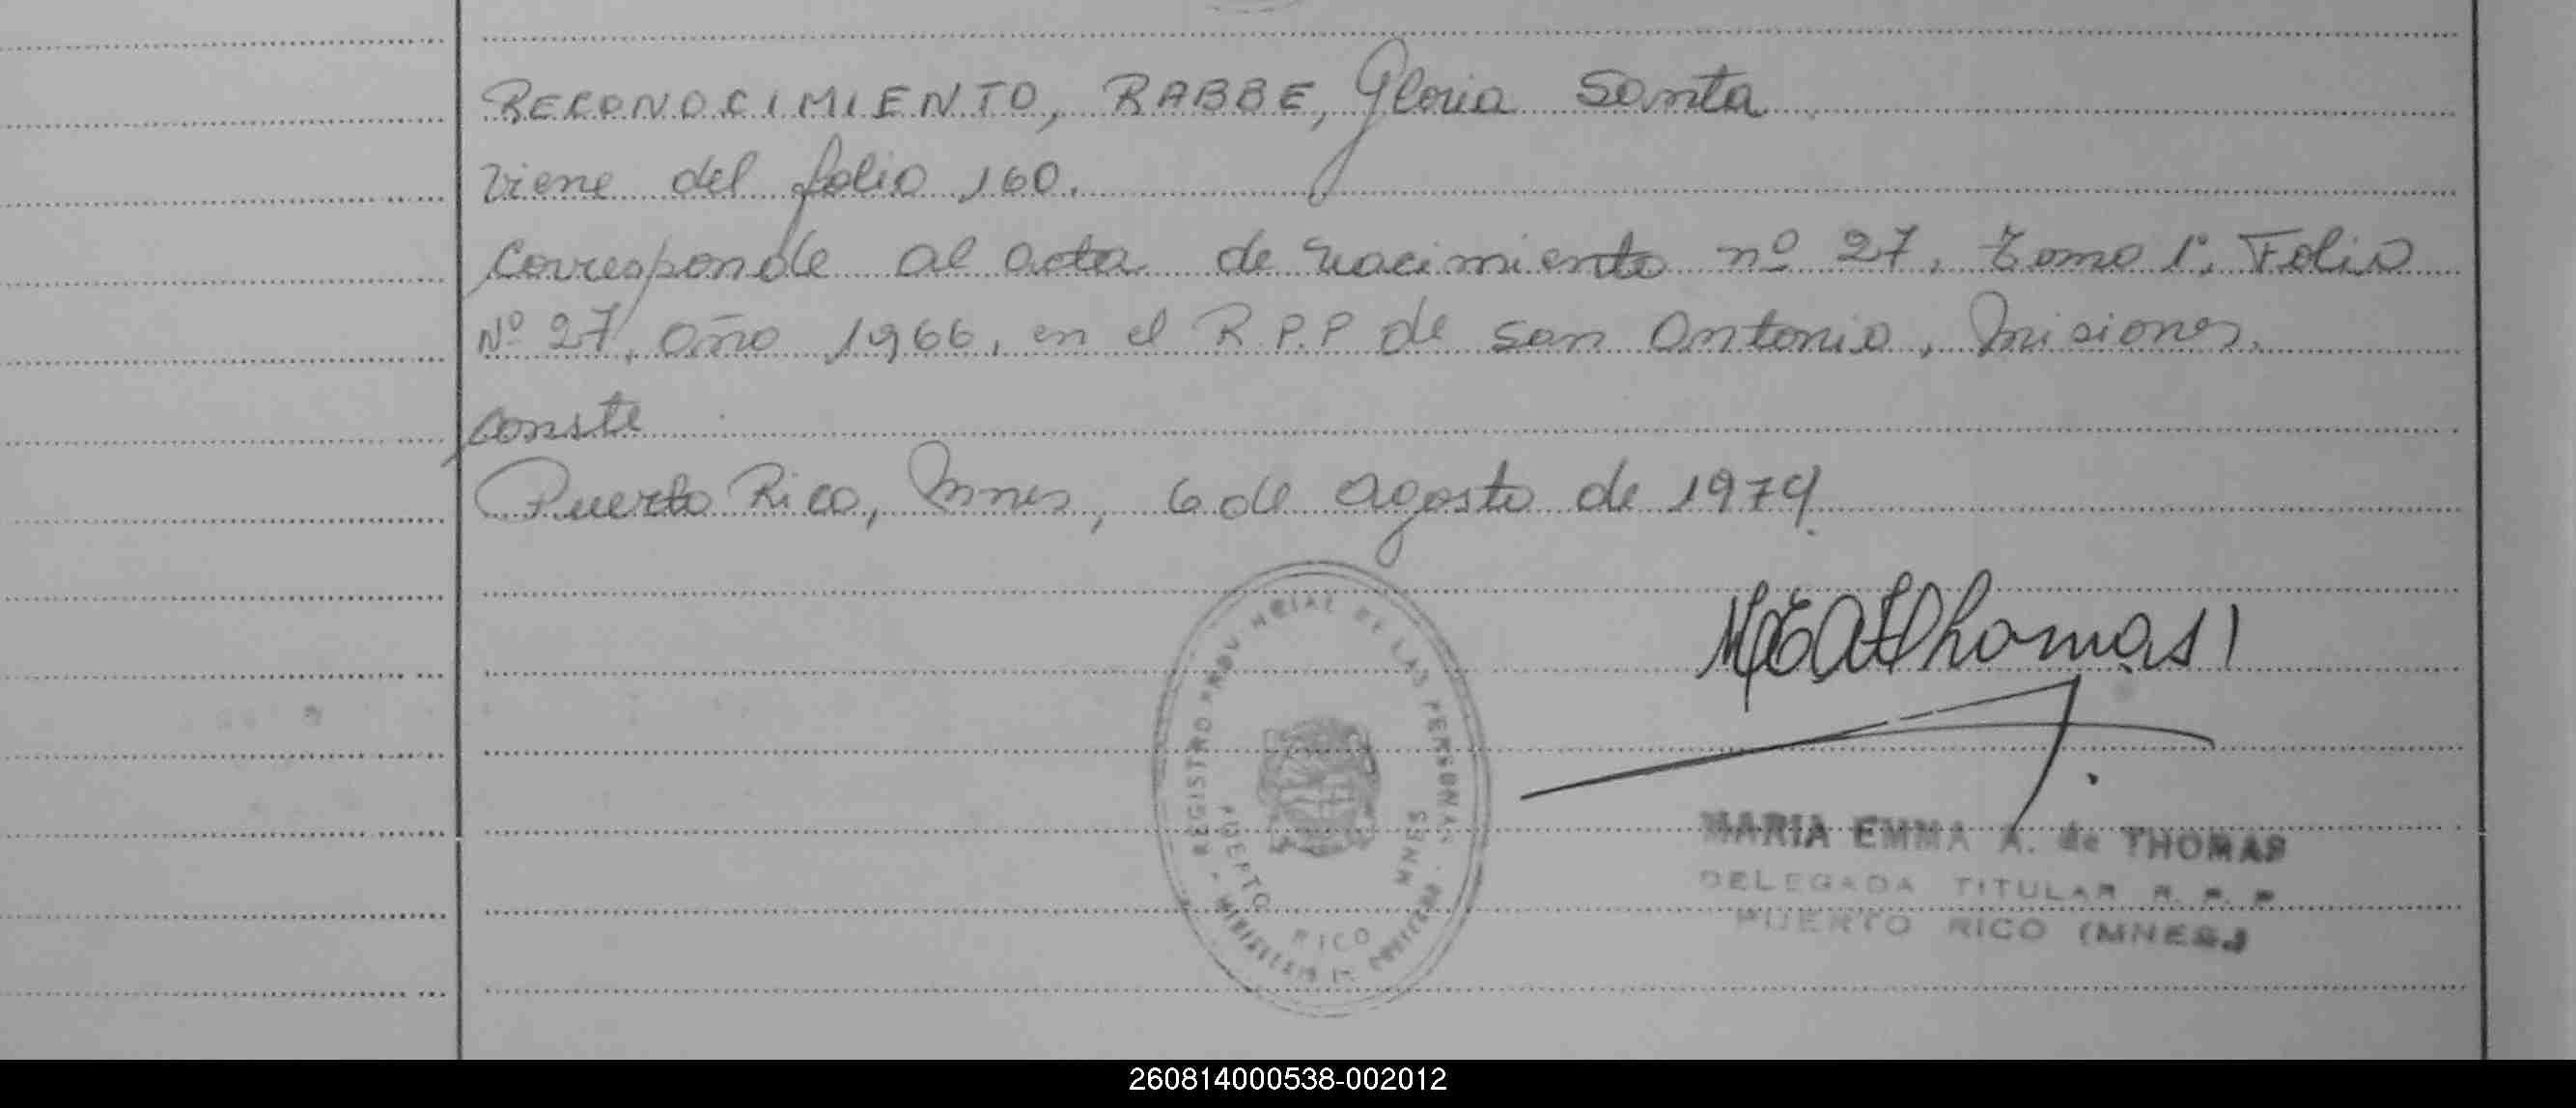 RECONOCIMIENTO, RABBE, Gloria Santa
viene del folio 160.
Corresponde al acta de nacimiento nº 27, Tomo 1º, Folio
Nº 27, año 1966, en el R.P.P de San Antonio, Misiones.
conste
Puerto Rico, Mnes, 6 de agosto de 1974.
REGISTRO PROVINCIAL DE LAS PERSONAS
PUERTO RICO MNES
MEAdThomas
MARIA EMMA A. de THOMAS
DELEGADA TITULAR R. P. P
PUERTO RICO (MNES.)
260814000538-002012